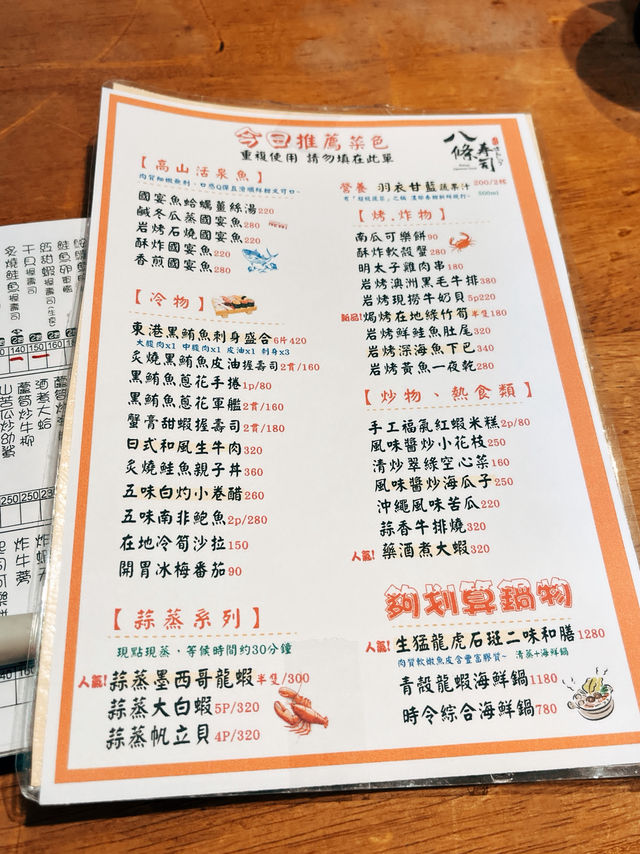 今日推薦菜色
重複使用 請勿填在此單
八條壽司
【高山活泉魚】
國宴魚蛤蠣薑絲湯220
鹹冬瓜蒸國宴魚280
岩烤石燒國宴魚220
酥炸國宴魚220
香煎國宴魚280
【冷物】
東港黑鮪魚刺身盛合6片420
大腹肉x1 中腹肉x1 皮油x1 刺身x3
炙燒黑鮪魚皮油握壽司2貫/160
黑鮪魚蔥花手捲1p/80
黑鮪魚蔥花軍艦2貫/160
蟹膏甜蝦握壽司2貫/180
日式和風生牛肉320
炙燒鮭魚親子丼360
五味白灼小卷醋260
五味南非鮑魚2p/280
在地冷筍沙拉150
開胃冰梅番茄90
【蒜蒸系列】
現點現蒸,等候時間約30分鐘
人氣!蒜蒸墨西哥龍蝦半隻/300
蒜蒸大白蝦5P/320
蒜蒸帆立貝4P/320
營養 羽衣甘藍蔬果汁200/2杯
500ml
【烤.炸物】
南瓜可樂餅90
酥炸軟殼蟹280
明太子雞肉串180
岩烤澳洲黑毛牛排380
岩烤現撈牛奶貝5p220
新品!焗烤在地綠竹筍半隻180
岩烤鮮鮭魚肚尾320
岩烤深海魚下巴340
岩烤黃魚一夜乾280
【炒物、熱食類】
手工福氣紅蝦米糕2p/80
風味醬炒小花枝250
清炒翠綠空心菜160
風味醬炒海瓜子250
沖繩風味苦瓜220
蒜香牛排燒320
人氣!藥酒煮大蝦320
夠划算鍋物
人氣!生猛龍虎石斑二味和膳1280
肉質軟嫩魚皮含豐富膠質~ 清蒸+海鮮鍋
青殼龍蝦海鮮鍋1180
時令綜合海鮮鍋780
炙燒鮭魚握壽司
干貝握壽司
140
150
160
山苦瓜炒幼鯊
蘆筍炒牛柳
酒煮大蛤
250
250
炸牛蒡